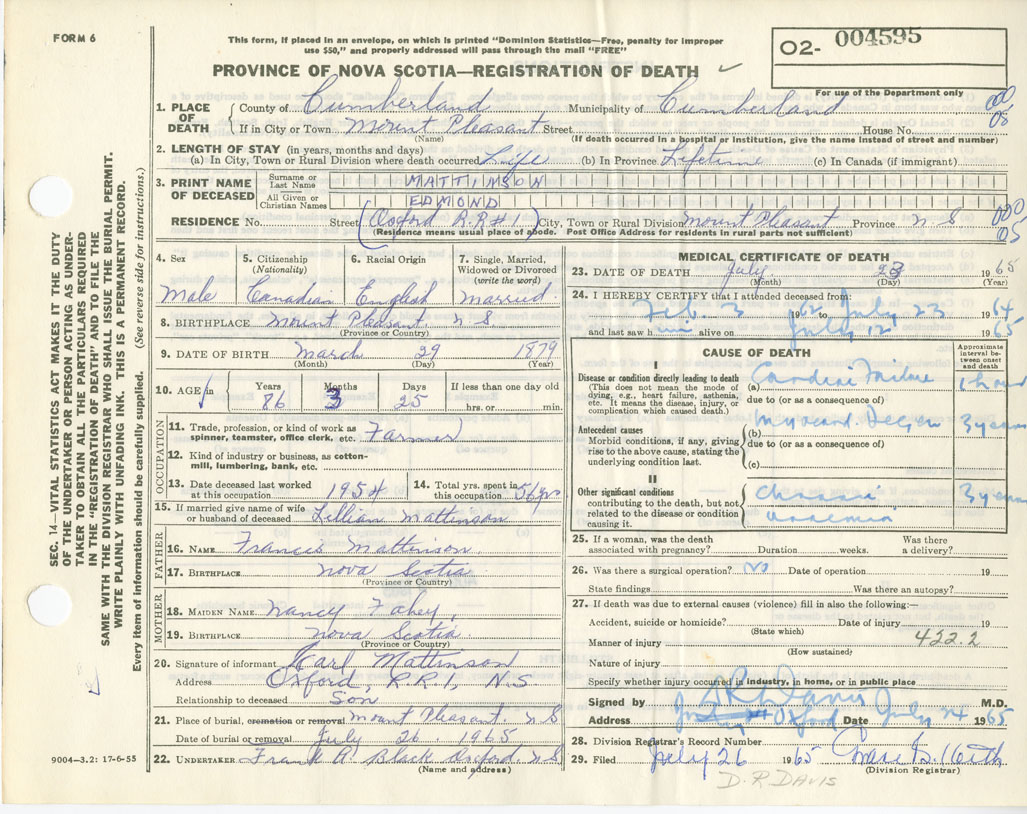 FORM 6
This form, if placed in an envelope, on which is printed "Dominion Statistics—Free, penalty for improper
use $50," and properly addressed will pass through the mail "FREE"
O2- 004595
For use of the Department only
PROVINCE OF NOVA SCOTIA—REGISTRATION OF DEATH ✓
SEC. 14—VITAL STATISTICS ACT MAKES IT THE DUTY
OF THE UNDERTAKER OR PERSON ACTING AS UNDER-
TAKER TO OBTAIN ALL THE PARTICULARS REQUIRED
IN THE "REGISTRATION OF DEATH" AND TO FILE THE
SAME WITH THE DIVISION REGISTRAR WHO SHALL ISSUE THE BURIAL PERMIT.
WRITE PLAINLY WITH UNFADING INK. THIS IS A PERMANENT RECORD.
Every item of information should be carefully supplied. (See reverse side for instructions.)
1. PLACE OF DEATH County of Cumberland Municipality of Cumberland 000 08
If in City or Town Mount Pleasant Street House No.
(Name) (If death occurred in a hospital or institution, give the name instead of street and number)
2. LENGTH OF STAY (in years, months and days)
(a) In City, Town or Rural Division where death occurred Life (b) In Province Lifetime (c) In Canada (if immigrant)
3. PRINT NAME OF DECEASED Surname or Last Name MATTINSON
All Given or Christian Names EDMOND
RESIDENCE No. Street (Oxford R.R #1) City, Town or Rural Division Mount Pleasant Province N S 000 05
(Residence means usual place of abode. Post Office Address for residents in rural parts not sufficient)
4. Sex Male
5. Citizenship (Nationality) Canadian
6. Racial Origin English
7. Single, Married, Widowed or Divorced (write the word) Married
8. BIRTHPLACE Mount Pleasant N S
(Province or Country)
9. DATE OF BIRTH March 29 1879
(Month) (Day) (Year)
10. AGE in Years 86 Months 3 Days 25 If less than one day old hrs. or min.
OCCUPATION
11. Trade, profession, or kind of work as
spinner, teamster, office clerk, etc. Farmer
12. Kind of industry or business, as cotton-
mill, lumbering, bank, etc.
13. Date deceased last worked at this occupation 1954 14. Total yrs. spent in this occupation 56 yrs
15. If married give name of wife
or husband of deceased Lillian Mattinson
FATHER
16. NAME Francis Mattinson
17. BIRTHPLACE Nova Scotia
(Province or Country)
MOTHER
18. MAIDEN NAME Nancy Fahey
19. BIRTHPLACE Nova Scotia
(Province or Country)
20. Signature of informant Karl Mattinson
Address Oxford, R.R.1, N.S
Relationship to deceased Son
21. Place of burial, cremation or removal Mount Pleasant. N S
Date of burial or removal July 26. 1965
22. UNDERTAKER Frank A. Black Oxford. N S
(Name and address)
9004—3.2: 17-6-55
MEDICAL CERTIFICATE OF DEATH
23. DATE OF DEATH July 23 1965
(Month) (Day) (Year)
24. I HEREBY CERTIFY that I attended deceased from:
Feb. 3 1962 to July 23 1964
and last saw him alive on July 12 1965
CAUSE OF DEATH
Approximate interval between onset and death
I
Disease or condition directly leading to death
(This does not mean the mode of
dying, e.g., heart failure, asthenia,
etc. It means the disease, injury, or
complication which caused death.)
(a) Cardiac Failure 1 hour
due to (or as a consequence of)
Antecedent causes
Morbid conditions, if any, giving
rise to the above cause, stating the
underlying condition last.
(b) Myocard. Degen 3 years
due to (or as a consequence of)
(c)
II
Other significant conditions
contributing to the death, but not
related to the disease or condition
causing it.
3 years
25. If a woman, was the death
associated with pregnancy? Duration weeks. Was there a delivery?
26. Was there a surgical operation? No Date of operation 19
State findings Was there an autopsy?
27. If death was due to external causes (violence) fill in also the following:—
Accident, suicide or homicide? Date of injury 19
(State which)
Manner of injury 422.2
(How sustained)
Nature of injury
Specify whether injury occurred in industry, in home, or in public place
Signed by D R Davis M.D.
Address Oxford Date July 24 1965
28. Division Registrar's Record Number
29. Filed July 26 1965
(Division Registrar)
D. R. DAVIS